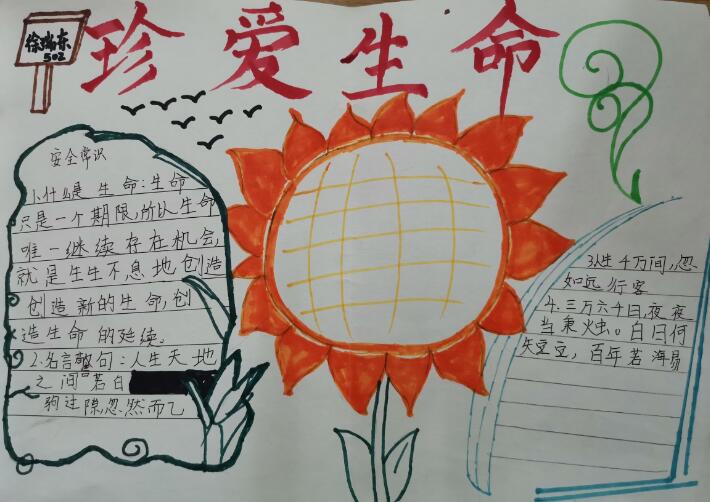 徐瑞东
502
珍爱生命
安全常识
1.什么是生命:生命
只是一个期限,所以生命
唯一继续存在机会,
就是生生不息地创造
创造新的生命,创
造生命的延续。
2.名言警句:人生天地
之间若白
驹过隙,忽然而乙
3.人生4万间,忽
如远行客
4.三万六千日,夜夜
当秉烛。白日何
矢立立,百年若海易